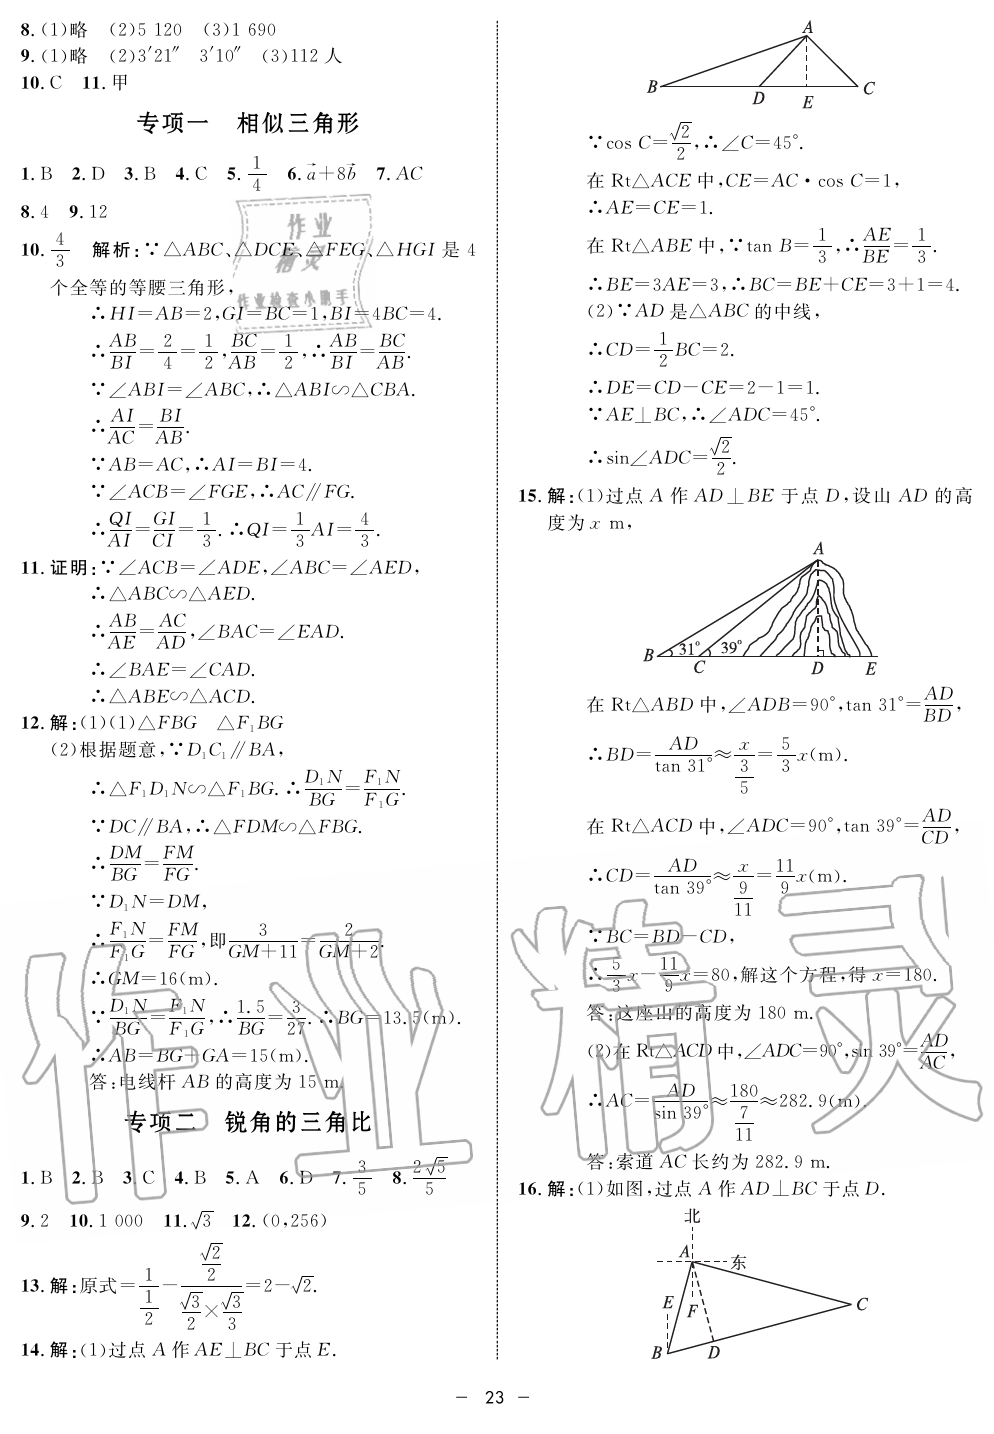 8.(1)略 (2)5 120 (3)1 690
9.(1)略 (2)3′21″ 3′10″ (3)112人
10.C 11.甲
专项一 相似三角形
1.B 2.D 3.B 4.C 5.1/4 6.a⃗+8b⃗ 7.AC
8.4 9.12
10.4/3 解析:∵△ABC、△DCE、△FEG、△HGI是4
个全等的等腰三角形,
∴HI=AB=2,GI=BC=1,BI=4BC=4.
∴AB/BI=2/4=1/2,BC/AB=1/2,∴AB/BI=BC/AB.
∵∠ABI=∠ABC,∴△ABI∽△CBA.
∴AI/AC=BI/AB.
∵AB=AC,∴AI=BI=4.
∵∠ACB=∠FGE,∴AC∥FG.
∴QI/AI=GI/CI=1/3.∴QI=1/3AI=4/3.
11.证明:∵∠ACB=∠ADE,∠ABC=∠AED,
∴△ABC∽△AED.
∴AB/AE=AC/AD,∠BAC=∠EAD.
∴∠BAE=∠CAD.
∴△ABE∽△ACD.
12.解:(1)(1)△FBG △F₁BG
(2)根据题意,∵D₁C₁∥BA,
∴△F₁D₁N∽△F₁BG.∴D₁N/BG=F₁N/F₁G.
∵DC∥BA,∴△FDM∽△FBG.
∴DM/BG=FM/FG.
∵D₁N=DM,
∴F₁N/F₁G=FM/FG,即3/(GM+11)=2/(GM+2).
∴GM=16(m).
∵D₁N/BG=F₁N/F₁G,∴1.5/BG=3/27.∴BG=13.5(m).
∴AB=BG+GA=15(m).
答:电线杆AB的高度为15 m.
专项二 锐角的三角比
1.B 2.B 3.C 4.B 5.A 6.D 7.3/5 8.2√5/5
9.2 10.1 000 11.√3 12.(0,256)
13.解:原式=1/(1/2)-(√2/2)/(√3/2×√3/3)=2-√2.
14.解:(1)过点A作AE⊥BC于点E.
A
B D E C
∵cos C=√2/2,∴∠C=45°.
在Rt△ACE中,CE=AC·cos C=1,
∴AE=CE=1.
在Rt△ABE中,∵tan B=1/3,∴AE/BE=1/3.
∴BE=3AE=3,∴BC=BE+CE=3+1=4.
(2)∵AD是△ABC的中线,
∴CD=1/2BC=2.
∴DE=CD-CE=2-1=1.
∵AE⊥BC,∴∠ADC=45°.
∴sin∠ADC=√2/2.
15.解:(1)过点A作AD⊥BE于点D,设山AD的高
度为x m,
A
31° 39°
B C D E
在Rt△ABD中,∠ADB=90°,tan 31°=AD/BD,
∴BD=AD/tan 31°≈x/(3/5)=5/3x(m).
在Rt△ACD中,∠ADC=90°,tan 39°=AD/CD,
∴CD=AD/tan 39°≈x/(9/11)=11/9x(m).
∵BC=BD-CD,
∴5/3x-11/9x=80,解这个方程,得x=180.
答:这座山的高度为180 m.
(2)在Rt△ACD中,∠ADC=90°,sin 39°=AD/AC,
∴AC=AD/sin 39°≈180/(7/11)≈282.9(m).
答:索道AC长约为282.9 m.
16.解:(1)如图,过点A作AD⊥BC于点D.
北
A 东
E F C
B D
- 23 -
作业
精灵
作业检查小助手
作业精灵